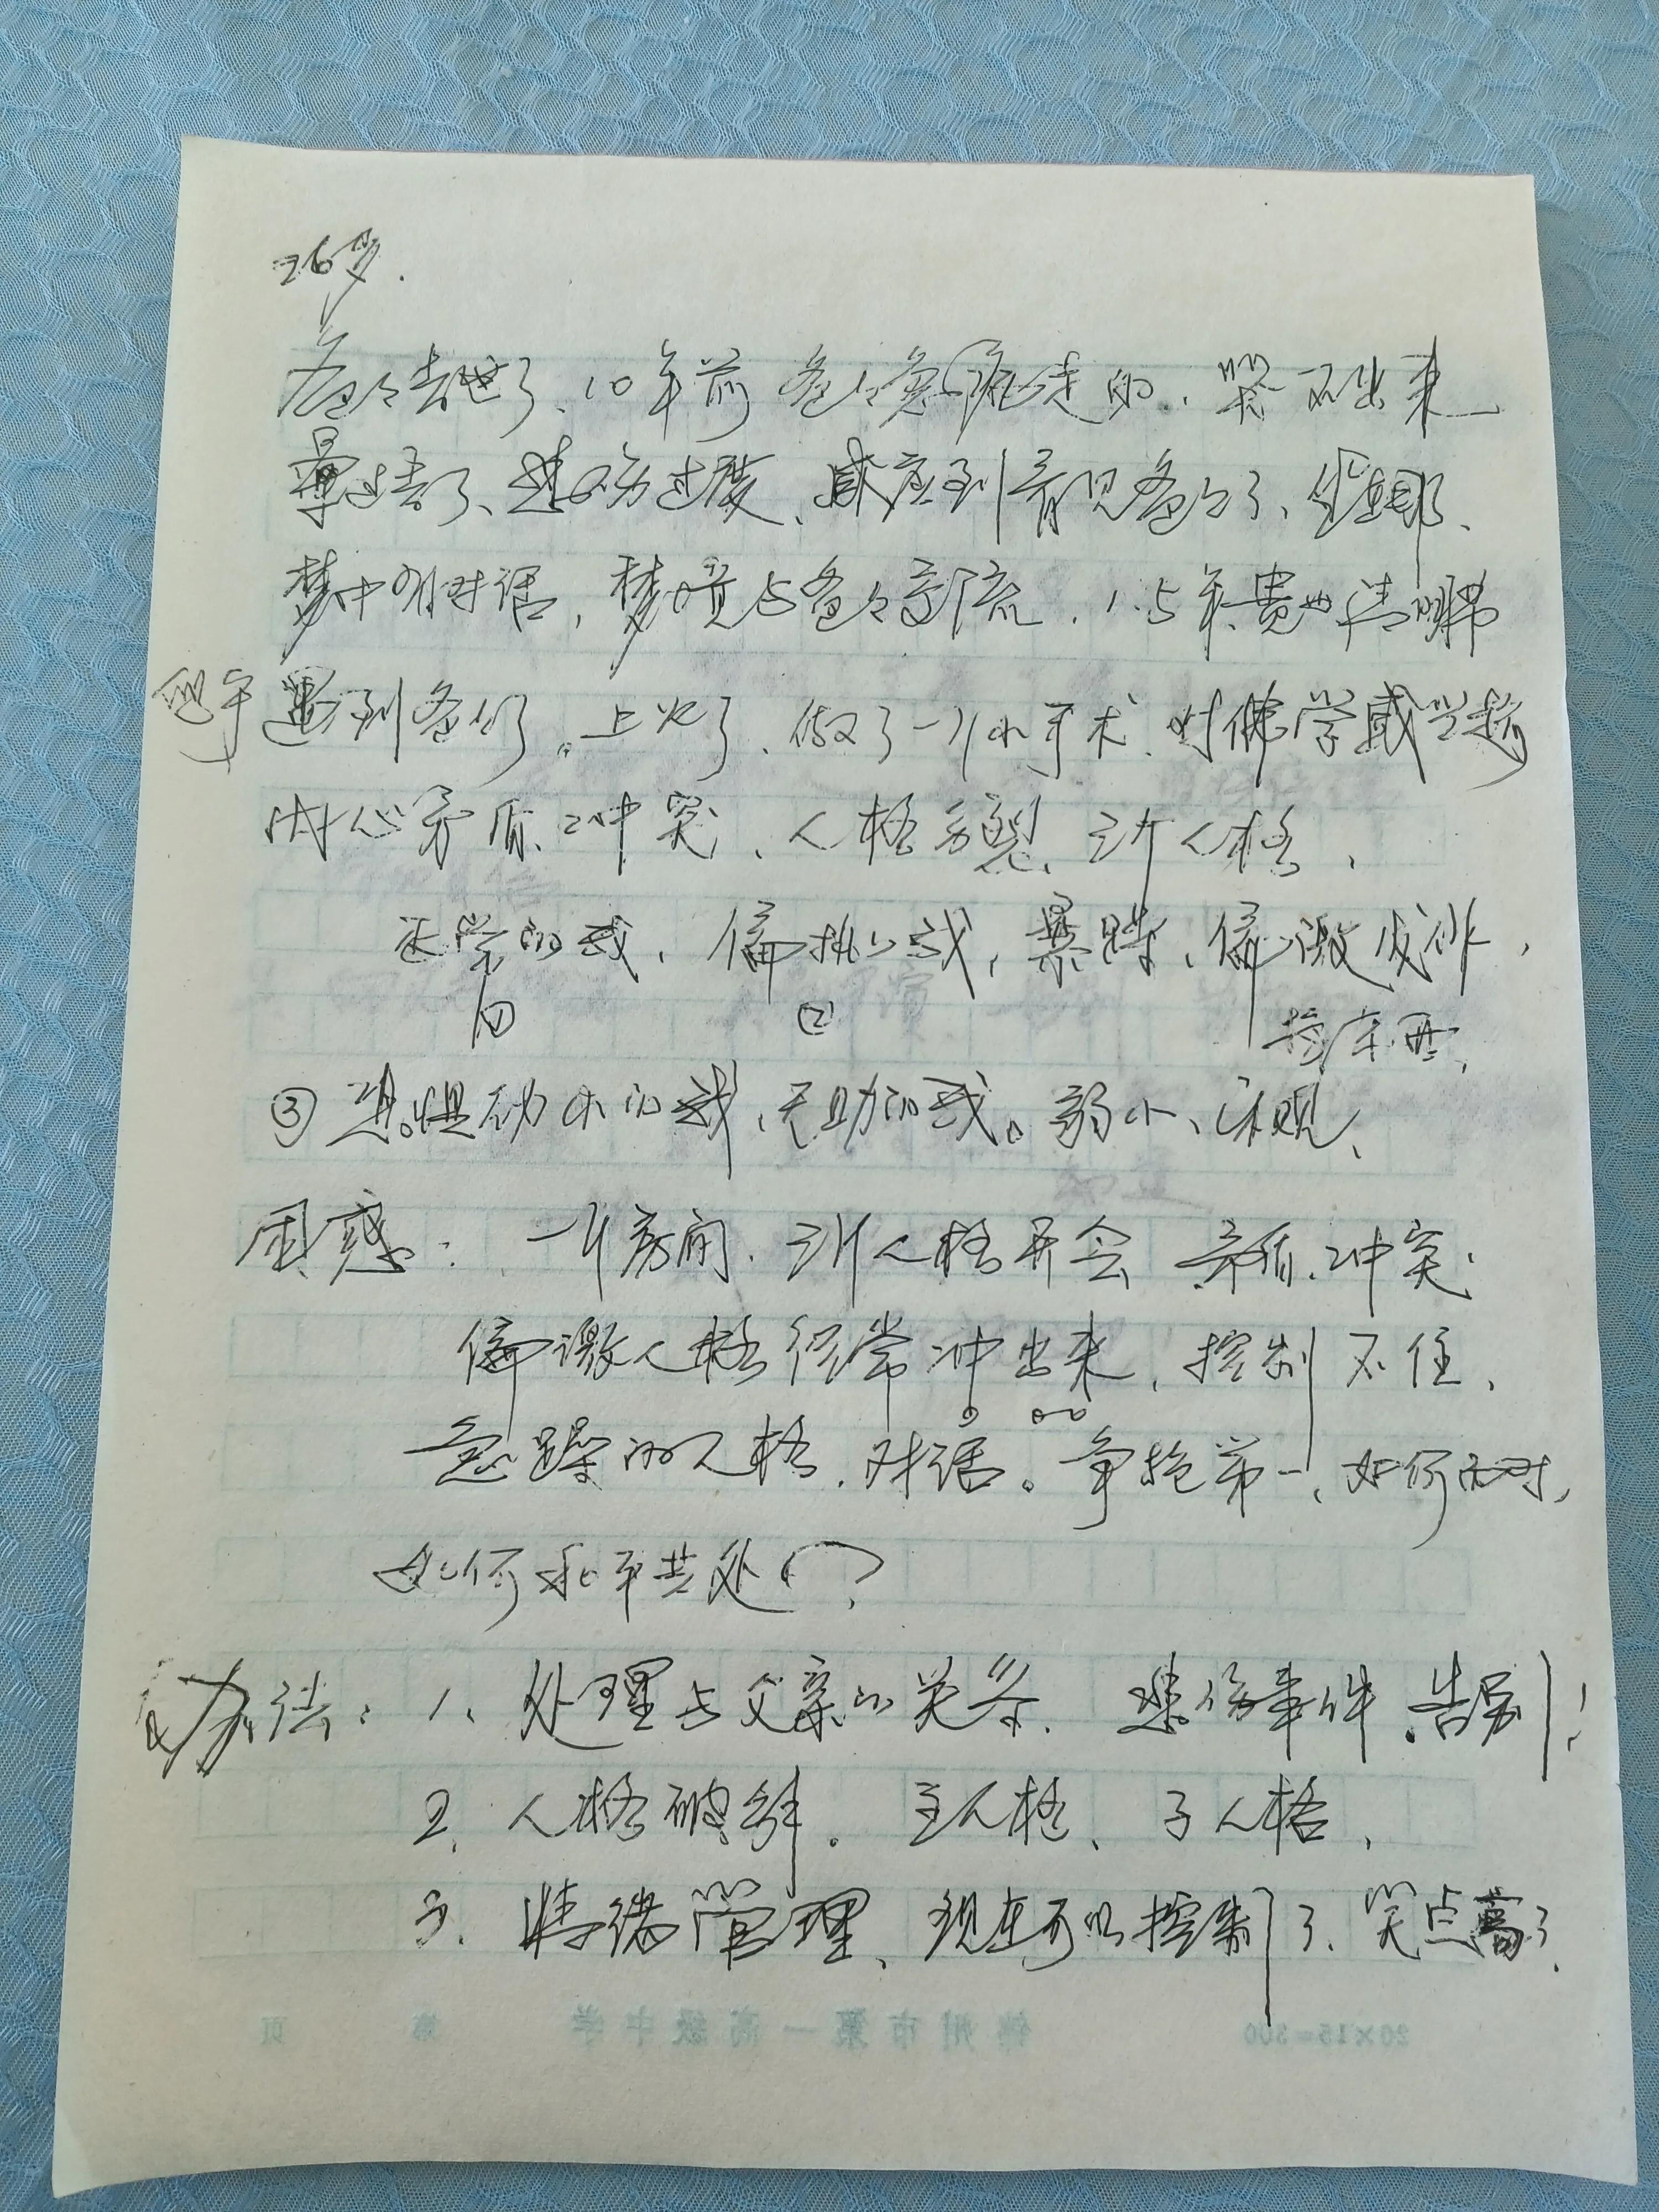 26岁.
爸爸去世了、10年前 爸爸急病走的、哭不出来
晕过去了、悲伤过度、感应到看见爸爸了、
梦中的对话,梦境与爸爸交流. 1.5年 清明节
遇到爸爸了。上火了、做了一个小手术、对佛学感兴趣
内心矛盾、冲突、人格分裂、三个人格、
正常的我、偏执的我,暴躁、偏激发火,
① ②
摔东西、
③ 退缩幼小的我、无助的我。弱小、
困惑: 一个房间、三个人格开会 矛盾、冲突;
偏激人格经常冲出来,控制不住、
急躁的人格、对话。争抢第一、如何应对,
如何和平共处?
办法:1、处理与父亲的关系、悲伤事件、告别!
2、人格破解。主人格、子人格、
3、情绪管理、现在可以控制了、笑点高了.
锦州市第一高级中学 第 页
20×15=300